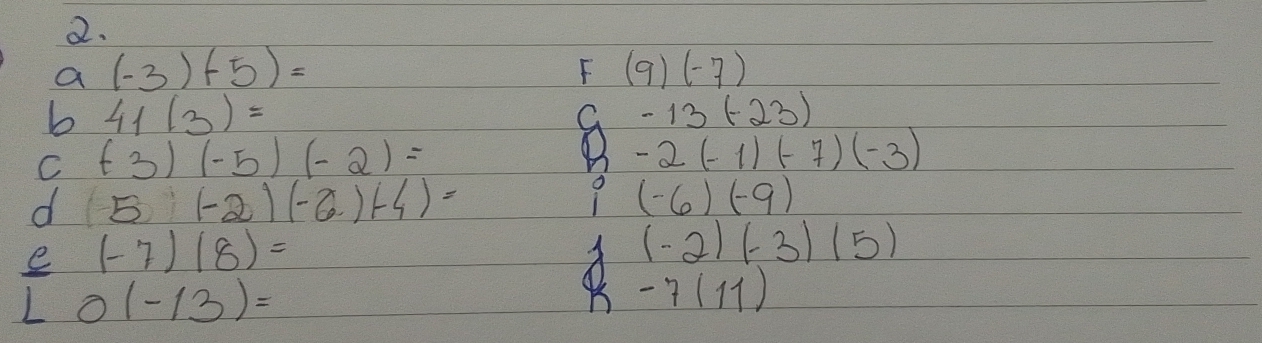 2.
a (-3)(-5)=
b 41(3)=
c (-3)(-5)(-2)=
d (5)(-2)(-2)(-4)=
e (-7)(8)=
L 0(-13)=
F (9)(-7)
G -13(-23)
h -2(-1)(-7)(-3)
i (-6)(-9)
j (-2)(-3)(5)
k -7(11)